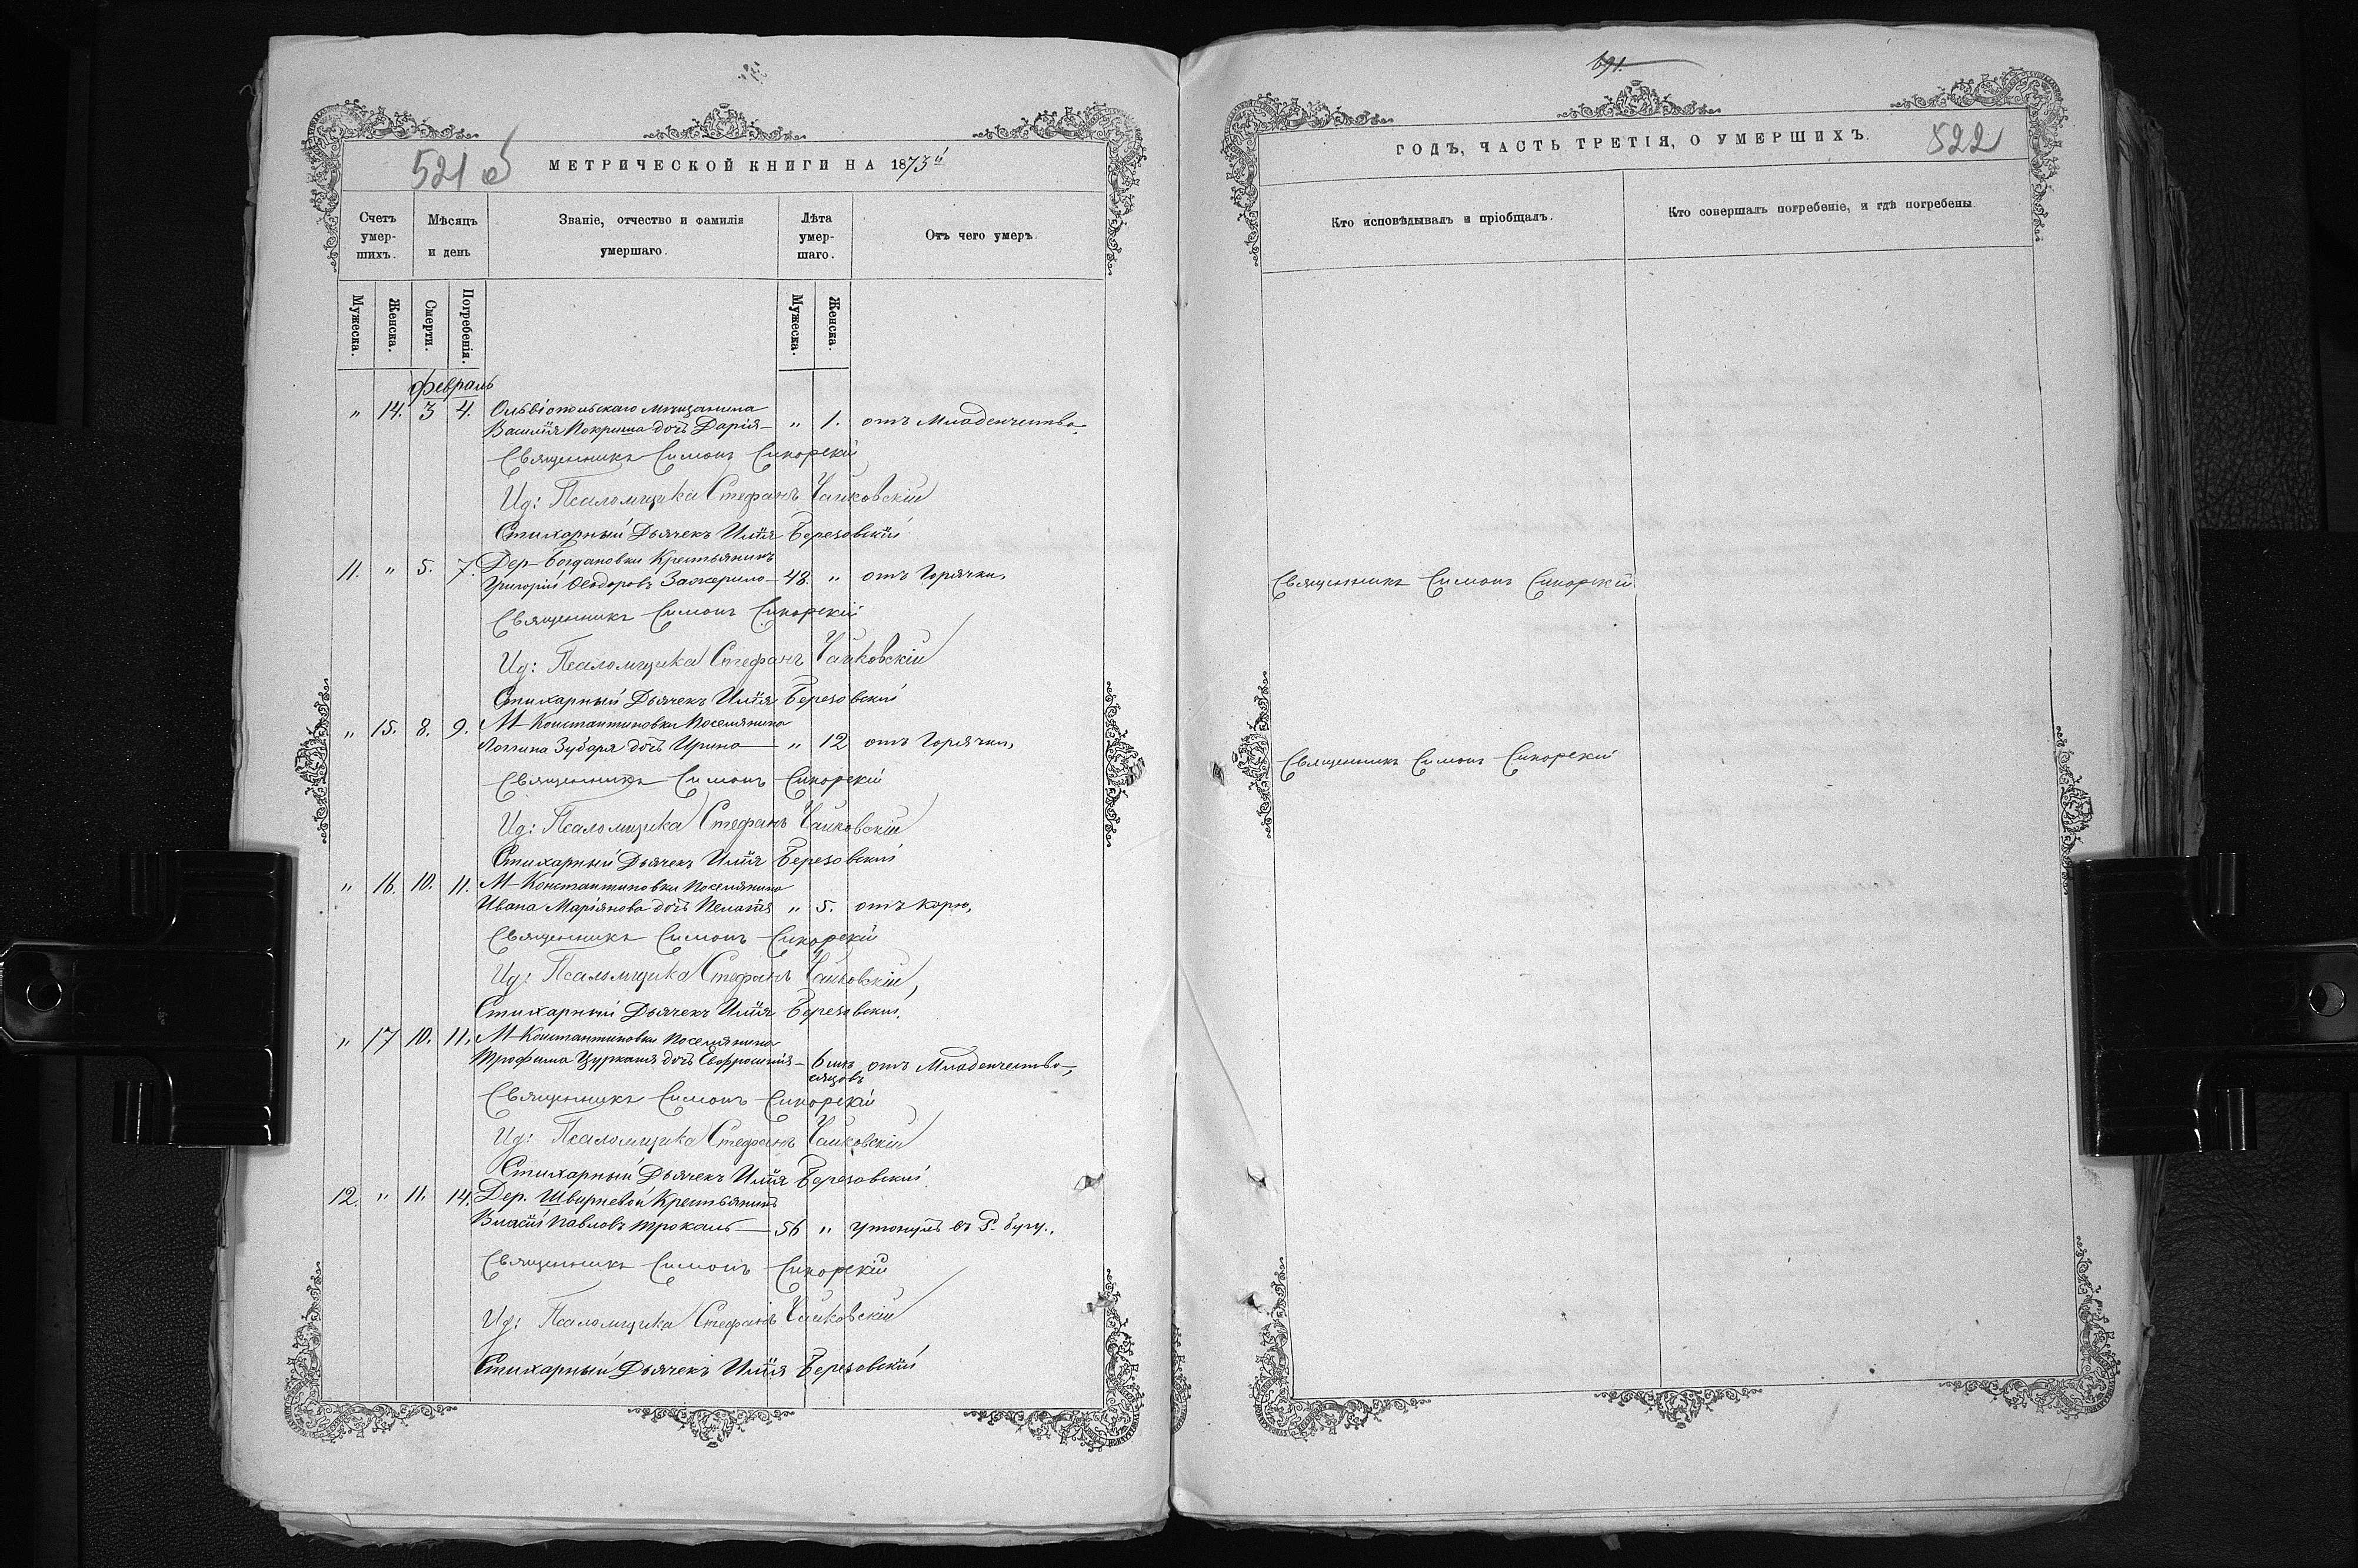 521 об
МЕТРИЧЕСКОЙ КНИГИ НА 1873й
Счетъ умер-шихъ.
Мѣсяцъ и день
Званіе, отчество и фамилія умершаго.
Лѣта умер-шаго.
Отъ чего умеръ.
Мужеска. Женска. Смерти. Погребенія. Мужеска. Женска.
Февраль
" 14. 3 4. Ольвіопольскаго мѣщанина
Василія Покриша дочь Дарія — " 1. отъ Младенчества,
Священникъ Симонъ Сикорскій
Ид: Псаломщика Стефанъ Чайковскій
Стихарный Дьячекъ Илія Березовскій
11. " 5. 7. Дер– Богдановки Крестьянинъ
Григорій Ѳеодоровъ Зажерило — 48. " отъ Горячки,
Священникъ Симонъ Сикорскій
Ид: Псаломщика Стефанъ Чайковскій
Стихарный Дьячекъ Илія Березовскій
" 15. 8. 9. М– Константиновки Поселянина
Логина Зубаря дочь Ирина — " 12 отъ Горячки,
Священникъ Симонъ Сикорскій
Ид: Псаломщика Стефанъ Чайковскій
Стихарный Дьячекъ Илія Березовскій
" 16. 10. 11. М– Константиновки Поселянина
Ивана Маріянова дочь Пелагія " 5. отъ Кори,
Священникъ Симонъ Сикорскій
Ид: Псаломщика Стефанъ Чайковскій,
Стихарный Дьячекъ Илія Березовскій.
" 17 10. 11. М– Константиновки Поселянина
Трофима Цуркана дочь Евфросинія — 6 мѣсяцовъ отъ Младенчества,
Священникъ Симонъ Сикорскій
Ид: Псаломщика Стефанъ Чайковскій
Стихарный Дьячекъ Илія Березовскій.
12. " 11. 14. Дер. Швирневой Крестьянинъ
Власій Павловъ Трокаль — 56 " утонулъ въ Р. Бугу.
Священникъ Симонъ Сикорскій
Ид: Псаломщика Стефанъ Чайковскій
Стихарный Дьячекъ Илія Березовскій
691.
ГОДЪ, ЧАСТЬ ТРЕТІЯ, О УМЕРШИХЪ.
522
Кто исповѣдывалъ и пріобщалъ.
Кто совершалъ погребеніе, и гдѣ погребены.
Священникъ Симонъ Сикорскій.
Священникъ Симонъ Сикорскій